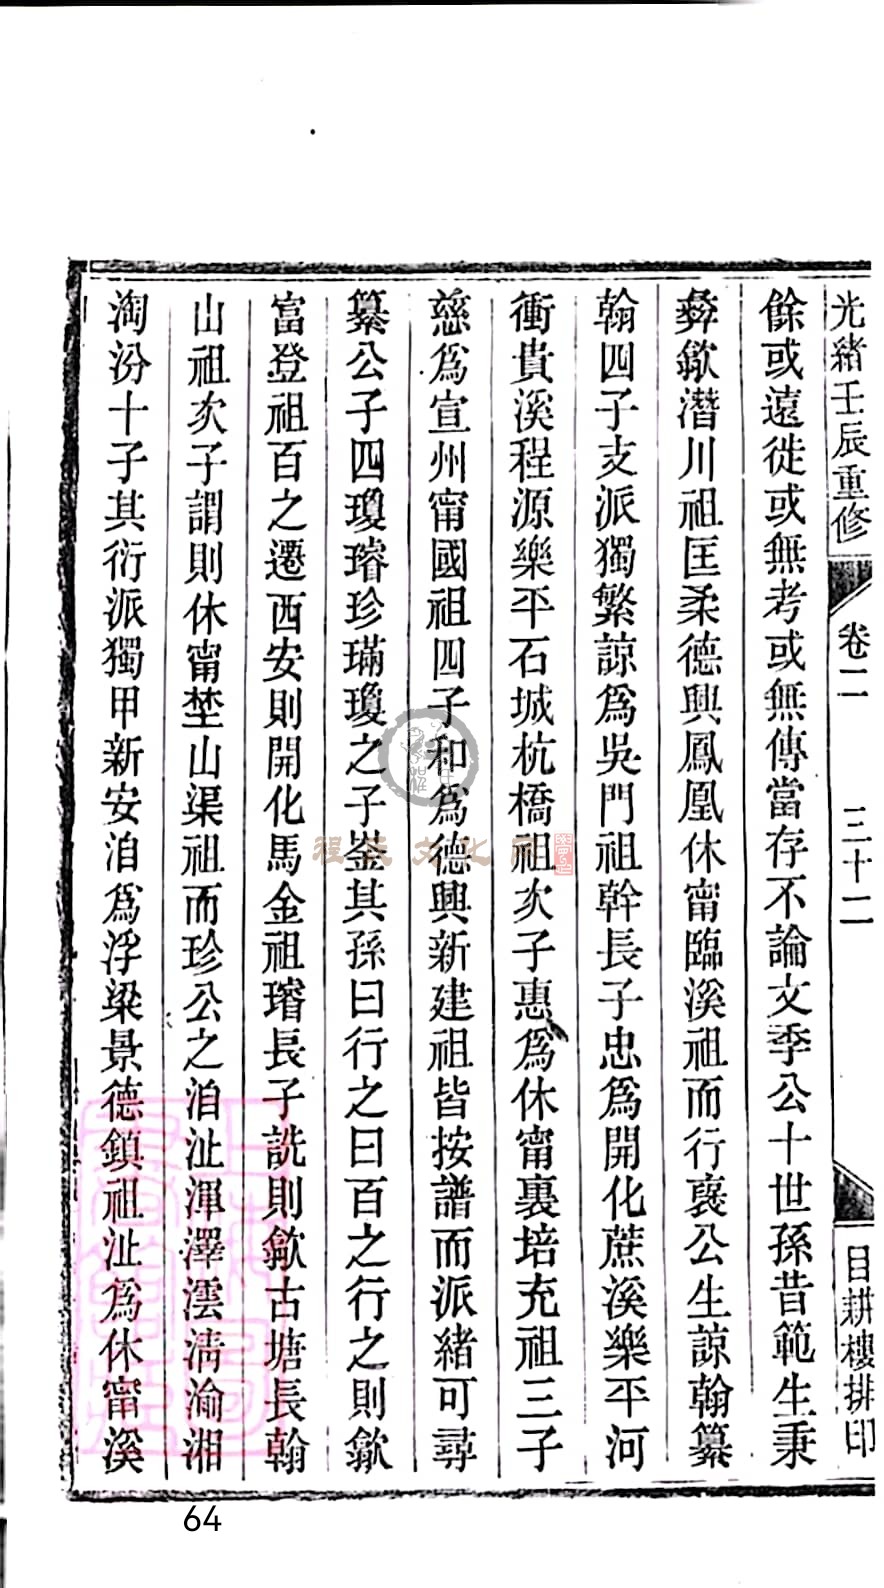 光緒壬辰重修
卷二
三十二
目耕樓排印
餘或遠徙或無考或無傳當存不論文季公十世孫昔範生秉
彝歙潛川祖匡柔德興鳳凰休甯臨溪祖而行襃公生諒翰纂
翰四子支派獨繁諒爲吳門祖幹長子忠爲開化蔗溪樂平河
衝貴溪程源樂平石城杭橋祖次子惠爲休甯裏培充祖三子
慈爲宣州甯國祖四子和爲德興新建祖皆按譜而派緒可尋
纂公子四瓊璿珍璊瓊之子崟其孫曰行之曰百之行之則歙
富登祖百之遷西安則開化馬金祖璿長子詵則歙古塘長翰
山祖次子謂則休甯埜山渠祖而珍公之洎沚渾澤澐淸渝湘
淘汾十子其衍派獨甲新安洎爲浮梁景德鎮祖沚爲休甯溪
程氏文化网
64